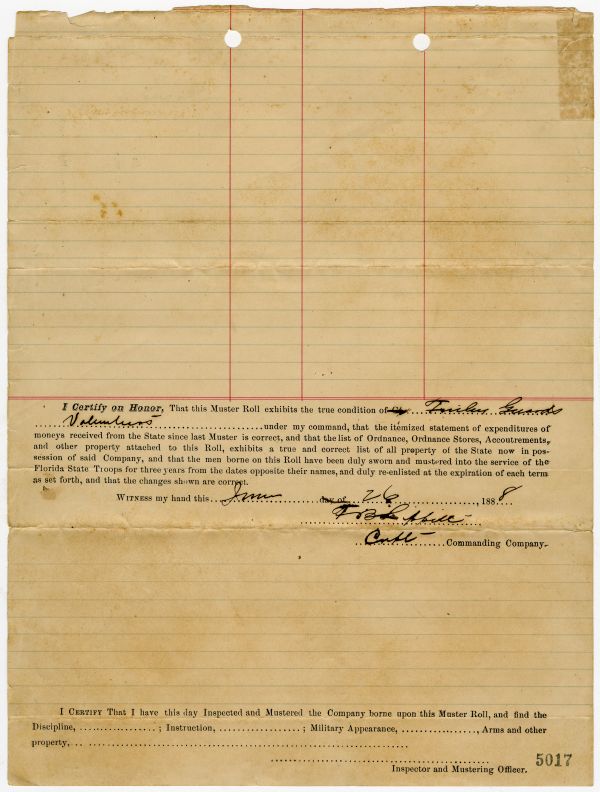 I Certify on Honor, That this Muster Roll exhibits the true condition of Guards
Volunteers under my command, that the itemized statement of expenditures of
moneys received from the State since last Muster is correct, and that the list of Ordnance, Ordnance Stores, Accoutrements,
and other property attached to this Roll, exhibits a true and correct list of all property of the State now in pos-
session of said Company, and that the men borne on this Roll have been duly sworn and mustered into the service of the
Florida State Troops for three years from the dates opposite their names, and duly re-enlisted at the expiration of each term
as set forth, and that the changes shown are correct.
WITNESS my hand this June day of 26, 1888
Capt Commanding Company.
I CERTIFY That I have this day Inspected and Mustered the Company borne upon this Muster Roll, and find the
Discipline, ; Instruction, ; Military Appearance, , Arms and other
property,
5017
Inspector and Mustering Officer.